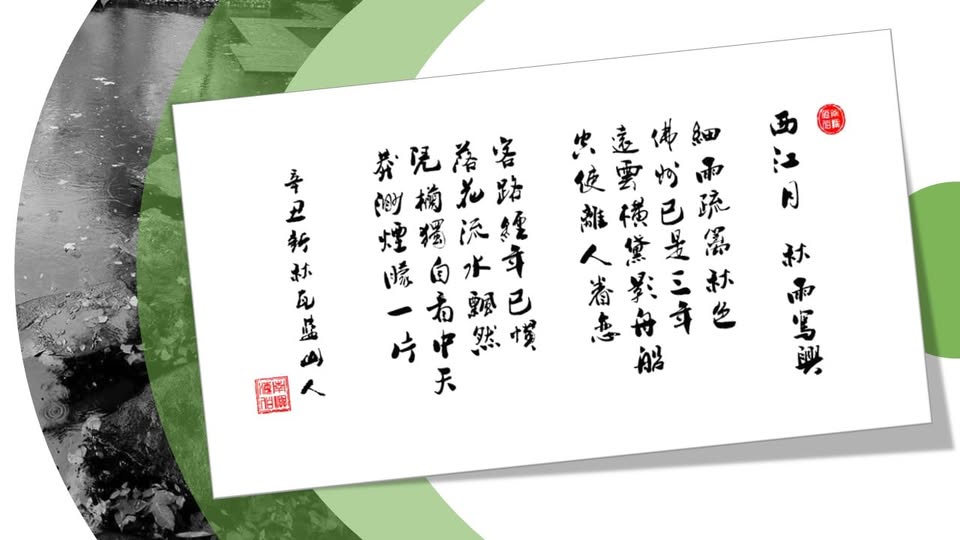 西江月 秋雨寫興
細雨疏篱秋色
佛州已是三年
遠雲橫黛影舟船
使離人眷恋
客路經年已慣
落花流水飄然
凭欄獨自看中天
煙朦一片
辛丑新秋瓦藍山人